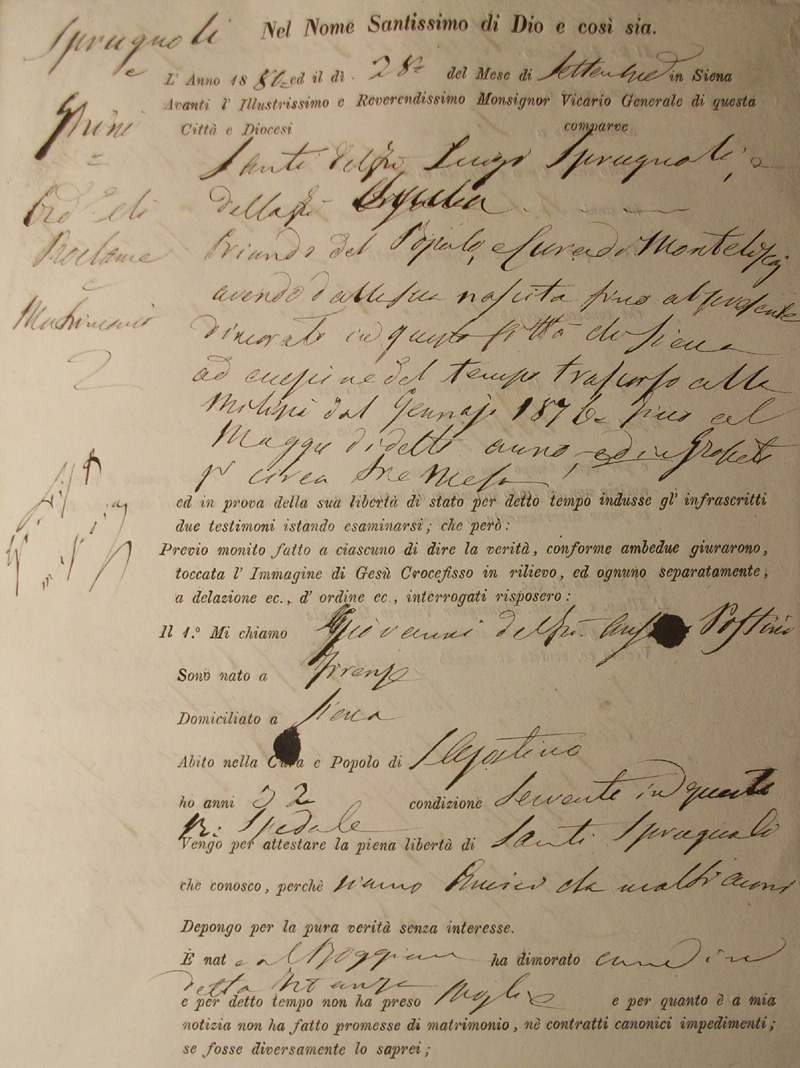 Nel Nome Santissimo di Dio e così sia.
Sprugnoli
e
L' Anno 18 80 ed il dì 28 del Mese di Settembre in Siena
Avanti l' Illustrissimo e Reverendissimo Monsignor Vicario Generale di questa
Ghini
Città e Diocesi comparve
Santi del fu Luigi Sprugnoli, e
della fu
oriundo del Popolo, e Cura di
Proclame
e
avendo dalla sua nascita fino al presente
Matrimonio
dimorato in questa Città di Siena
ad eccezione del tempo trascorso alla
Milizia dal Gennajo 1876 fino al
Maggio di detto anno, ed in Grosseto
p circa tre Mesi
ed in prova della sua libertà di stato per detto tempo indusse gl' infrascritti
due testimoni istando esaminarsi; che però:
Previo monito fatto a ciascuno di dire la verità, conforme ambedue giurarono,
toccata l' Immagine di Gesù Crocefisso in rilievo, ed ognuno separatamente,
a delazione ec., d' ordine ec., interrogati risposero:
Il 1.º Mi chiamo Giovanni del fu
Sono nato a Firenze
Domiciliato a Siena
Abito nella Cura e Popolo di S. Agostino
ho anni 32 condizione Servente in questo
R. Spedale
Vengo per attestare la piena libertà di Santi Sprugnoli
che conosco, perchè siamo Amici da molti anni
Depongo per la pura verità senza interesse.
È nat o al Poggione ha dimorato come in
detta Istanza
e per detto tempo non ha preso Moglie e per quanto è a mia
notizia non ha fatto promesse di matrimonio, nè contratti canonici impedimenti;
se fosse diversamente lo saprei;